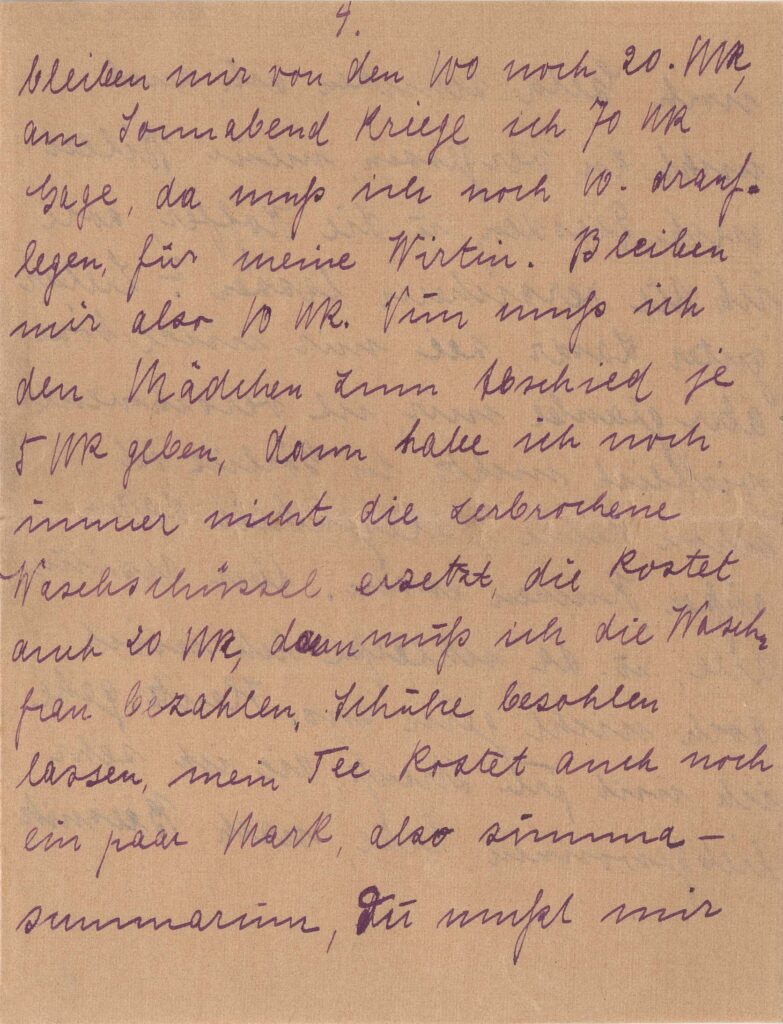 4.
bleiben mir von den 100 noch 20. Mk,
am Sonnabend kriege ich 70 Mk
Gage, da muß ich noch 10. drauf-
legen, für meine Wirtin. Bleiben
mir also 10 Mk. Nun muß ich
den Mädchen zum Abschied je
5 Mk geben, dann habe ich noch
immer nicht die zerbrochene
Waschschüssel ersetzt, die kostet
auch 20 Mk, dann muß ich die Wasch-
frau bezahlen, Schuhe besohlen
lassen, mein Tee kostet auch noch
ein paar Mark, also summa-
summarum, Du mußt mir